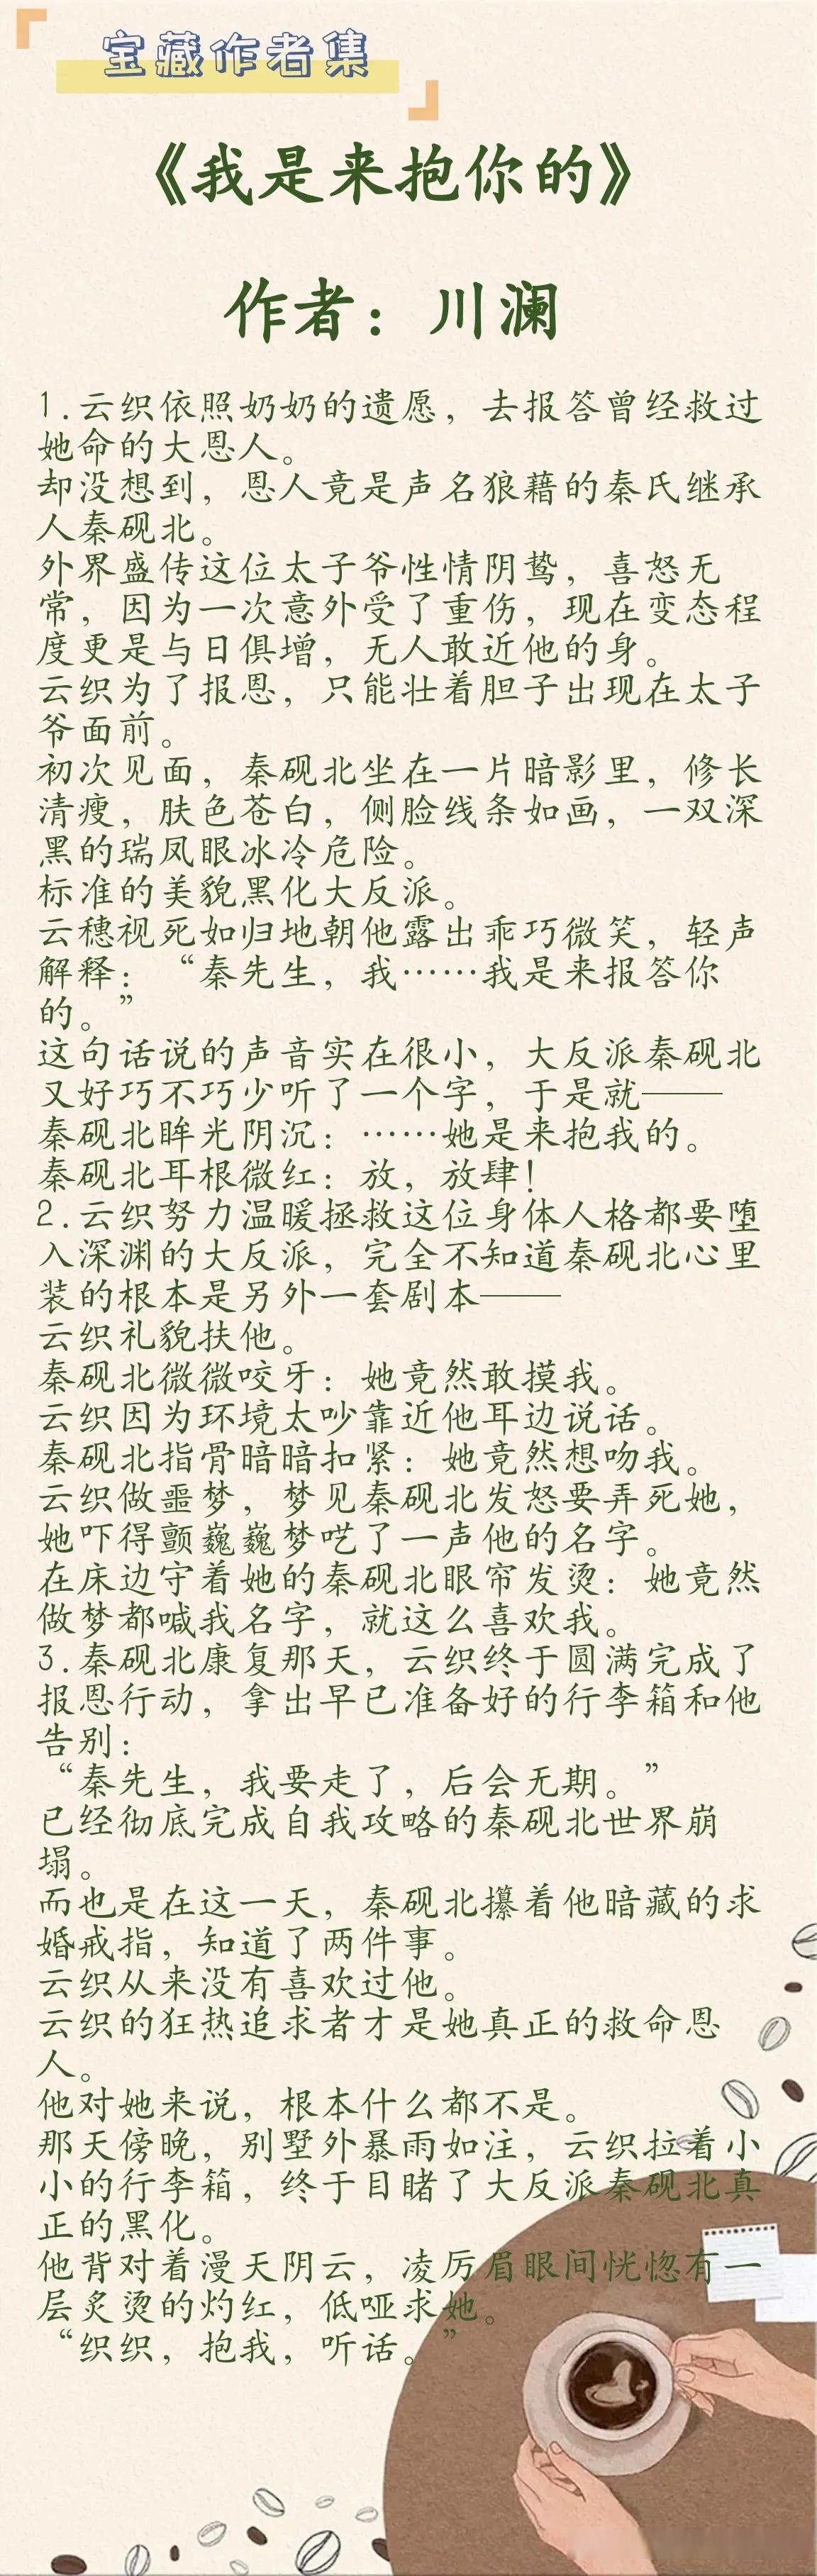 宝藏作者集
《我是来抱你的》
作者：川澜
1.云织依照奶奶的遗愿，去报答曾经救过
她命的大恩人。
却没想到，恩人竟是声名狼藉的秦氏继承
人秦砚北。
外界盛传这位太子爷性情阴鸷，喜怒无
常，因为一次意外受了重伤，现在变态程
度更是与日俱增，无人敢近他的身。
云织为了报恩，只能壮着胆子出现在太子
爷面前。
初次见面，秦砚北坐在一片暗影里，修长
清瘦，肤色苍白，侧脸线条如画，一双深
黑的瑞凤眼冰冷危险。
标准的美貌黑化大反派。
云穗视死如归地朝他露出乖巧微笑，轻声
解释：“秦先生，我……我是来报答你
的。”
这句话说的声音实在很小，大反派秦砚北
又好巧不巧少听了一个字，于是就——
秦砚北眸光阴沉：……她是来抱我的。
秦砚北耳根微红：放，放肆！
2.云织努力温暖拯救这位身体人格都要堕
入深渊的大反派，完全不知道秦砚北心里
装的根本是另外一套剧本——
云织礼貌扶他。
秦砚北微微咬牙：她竟然敢摸我。
云织因为环境太吵靠近他耳边说话。
秦砚北指骨暗暗扣紧：她竟然想吻我。
云织做噩梦，梦见秦砚北发怒要弄死她，
她吓得颤巍巍梦呓了一声他的名字。
在床边守着她的秦砚北眼帘发烫：她竟然
做梦都喊我名字，就这么喜欢我。
3.秦砚北康复那天，云织终于圆满完成了
报恩行动，拿出早已准备好的行李箱和他
告别：
“秦先生，我要走了，后会无期。”
已经彻底完成自我攻略的秦砚北世界崩
塌。
而也是在这一天，秦砚北攥着他暗藏的求
婚戒指，知道了两件事。
云织从来没有喜欢过他。
云织的狂热追求者才是她真正的救命恩
人。
他对她来说，根本什么都不是。
那天傍晚，别墅外暴雨如注，云织拉着小
小的行李箱，终于目睹了大反派秦砚北真
正的黑化。
他背对着漫天阴云，凌厉眉眼间恍惚有一
层炙烫的灼红，低哑求她。
“织织，抱我，听话。”